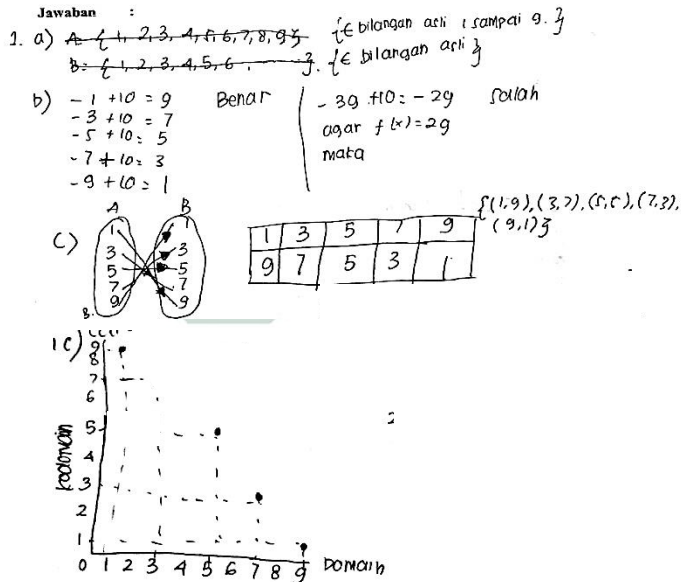 Jawaban :
1. a) A = { 1, 2, 3, 4, 5, 6, 7, 8, 9 } {∈ bilangan asli 1 sampai 9. }
B = { 1, 2, 3, 4, 5, 6 . }. {∈ bilangan asli }
b) - 1 + 10 = 9 Benar
- 3 + 10 = 7
- 5 + 10 = 5
- 7 + 10 = 3
- 9 + 10 = 1
- 39 + 10 = - 29 Salah
agar f (x) = 29
maka
c) A B
1 1
3 3
5 5
7 7
9 9
1 3 5 7 9
9 7 5 3 1
{(1,9), (3,7), (5,5), (7,3),
(9,1)}
1 c) 9
8
7
6
5
4
3
2
1
kodomain
0 1 2 3 4 5 6 7 8 9 Domain